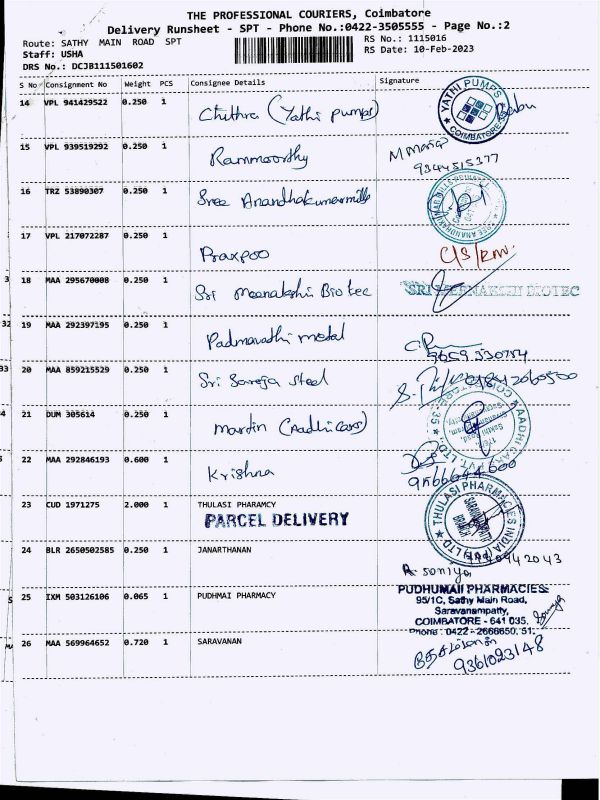 THE PROFESSIONAL COURIERS, Coimbatore
Delivery Runsheet - SPT - Phone No.:0422-3505555 - Page No.:2
Route: SATHY MAIN ROAD SPT RS No.: 1115016
Staff: USHA RS Date: 10-Feb-2023
DRS No.: DCJB111501602
S No Consignment No Weight PCS Consignee Details Signature
14 VPL 941429522 0.250 1 Chithra (Yathi pumps) YATHI PUMPS COIMBATORE Babu
15 VPL 939519292 0.250 1 Rammoorthy
9344515377
16 TRZ 53890307 0.250 1 Sree Anandhakumarmills
17 VPL 217072287 0.250 1
18 MAA 295670008 0.250 1 Sri Meenakshi Biotec SRI MEENAKSHI BIOTEC
19 MAA 292397195 0.250 1 Padmavathi metal
9659330754
20 MAA 859215529 0.250 1 Sri Saroja steel
21 DUM 305614 0.250 1 Martin (Aadhi cars) AADHI CARS PVT. LTD.
22 MAA 292846193 0.600 1 Krishna
9566644600
23 CUD 1971275 2.000 1 THULASI PHARAMCY THULASI PHARMACIES INDIA (P) LTD
PARCEL DELIVERY SARAVANAMPATTY BRANCH
24 BLR 2650502585 0.250 1 JANARTHANAN
R. Soniya
25 IXM 503126106 0.065 1 PUDHMAI PHARMACY PUDHUMAII PHARMACIESS
95/1C, Sathy Main Road,
Saravanampatty,
COIMBATORE - 641 035.
Phone : 0422 - 2666650, 51.
26 MAA 569964652 0.720 1 SARAVANAN
9361023148